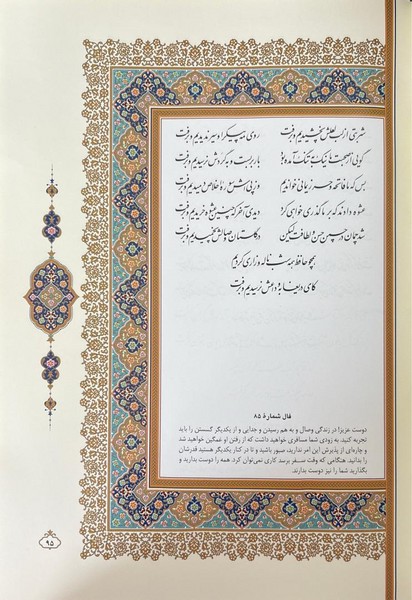 شربتی از لب لعلش نچشیدیم و برفت روی مه پیکر او سیر ندیدیم و برفت
گویی از صحبت ما نیک به تنگ آمده بود بار بربست و به گردش نرسیدیم و برفت
بس که ما فاتحه و حرز یمانی خواندیم وز پی‌اش سوره اخلاص دمیدیم و برفت
عشوه دادند که بر ما گذری خواهی کرد دیدی آخر که چنین عشوه خریدیم و برفت
شد چمان در چمن حسن و لطافت لیکن در گلستان وصالش نچمیدیم و برفت
همچو حافظ همه شب ناله و زاری کردیم
کای دریغا به وداعش نرسیدیم و برفت
فال شمارهٔ ۸۵
دوست عزیز! در زندگی وصال و به هم رسیدن و جدایی و از یکدیگر گسستن را باید
تجربه کنید. به زودی شما مسافری خواهید داشت که از رفتن او غمگین خواهید شد
و چاره‌ای از پذیرش این امر ندارید، صبور باشید و تا در کنار یکدیگر هستید قدرشان
را بدانید. هنگامی که وقت سفر برسد کاری نمی‌توان کرد. همه را دوست بدارید و
بگذارید شما را نیز دوست بدارند.
۹۵